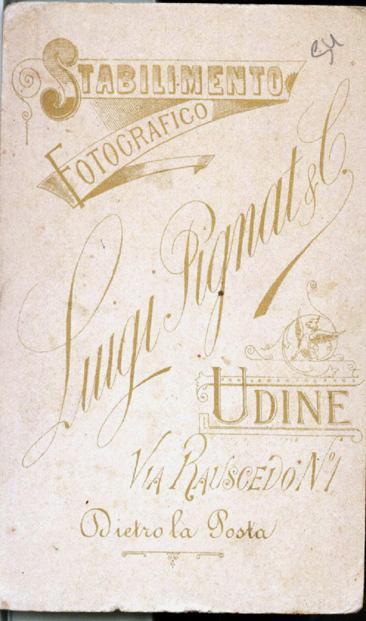 STABILIMENTO
FOTOGRAFICO
Luigi Pignat & C.
UDINE
VIA RAUSCEDO N° 1
Dietro la Posta